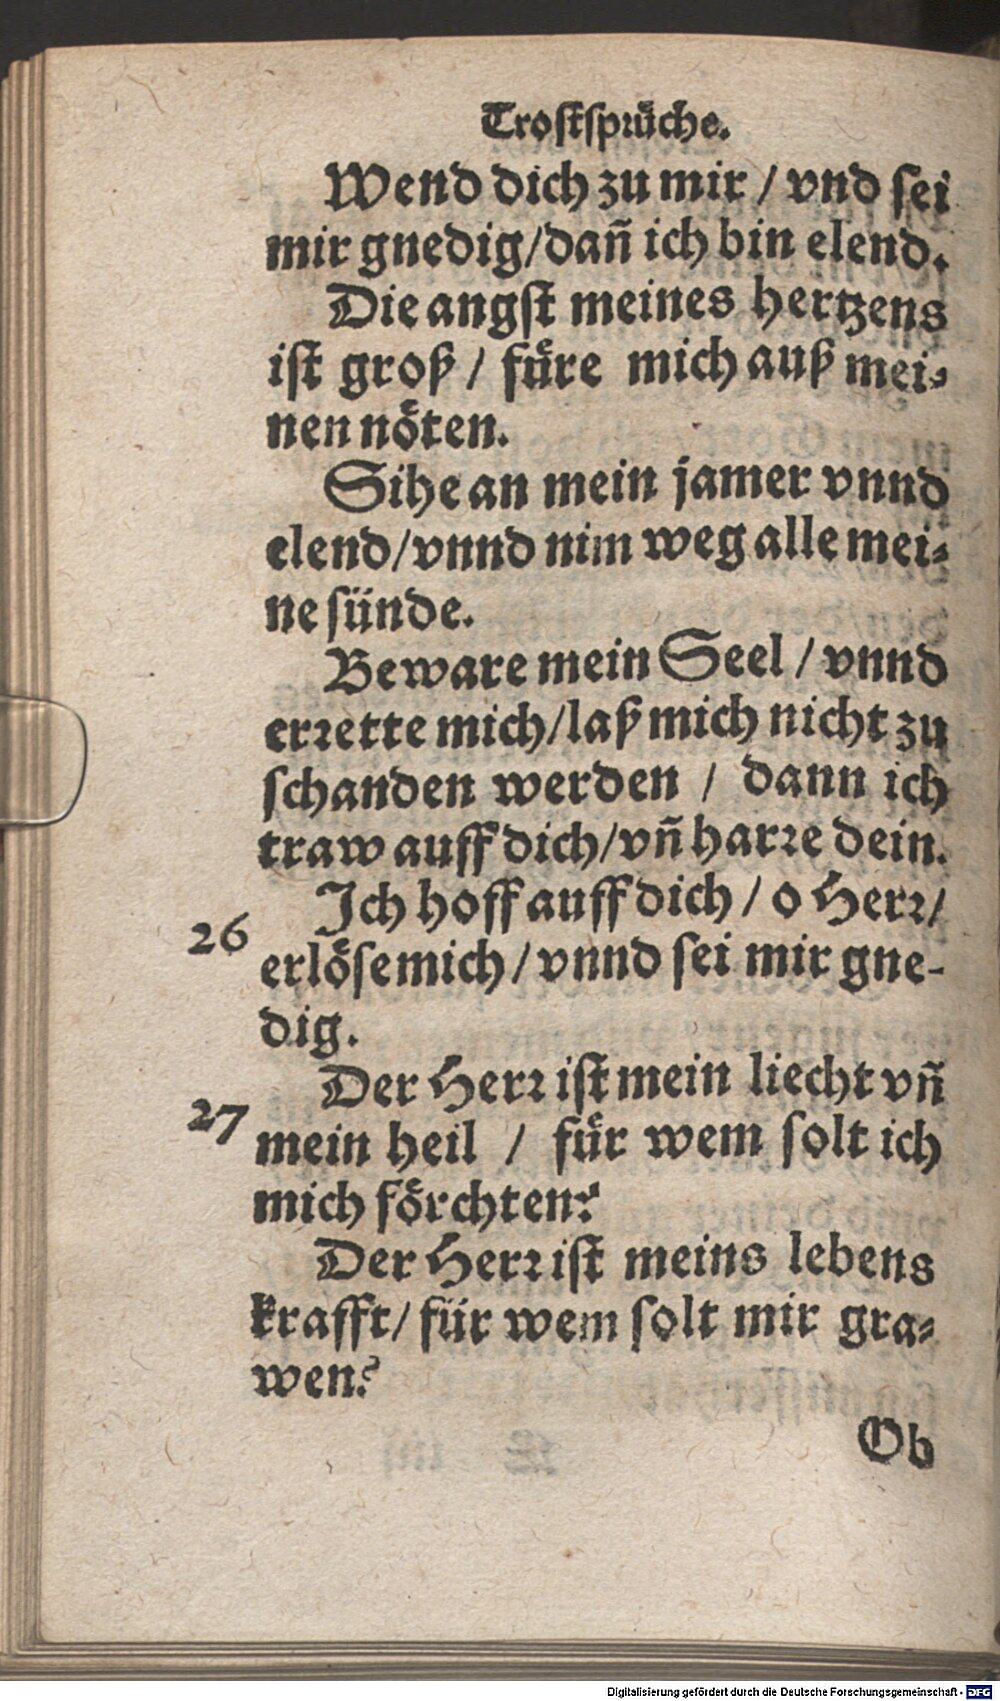 Troſtſprüche.
Wend dich zu mir / vnd ſei
mir gnedig/dañ ich bin elend.
Die angſt meines hertzens
iſt groß / füre mich auß mei⸗
nen nöten.
Sihe an mein jamer vnnd
elend/vnnd nim weg alle mei⸗
ne ſünde.
Beware mein Seel / vnnd
erꝛette mich/laß mich nicht zu
ſchanden werden / dann ich
traw auff dich/vñ harꝛe dein.
Ich hoff auff dich / o Herꝛ/
26
erlöſe mich / vnnd ſei mir gne-
dig.
Der Herꝛ iſt mein liecht vñ
27
mein heil / für wem ſolt ich
mich förchten?
Der Herꝛ iſt meins lebens
krafft/ für wem ſolt mir gra⸗
wen?
Ob
Digitalisierung gefördert durch die Deutsche Forschungsgemeinschaft - DFG